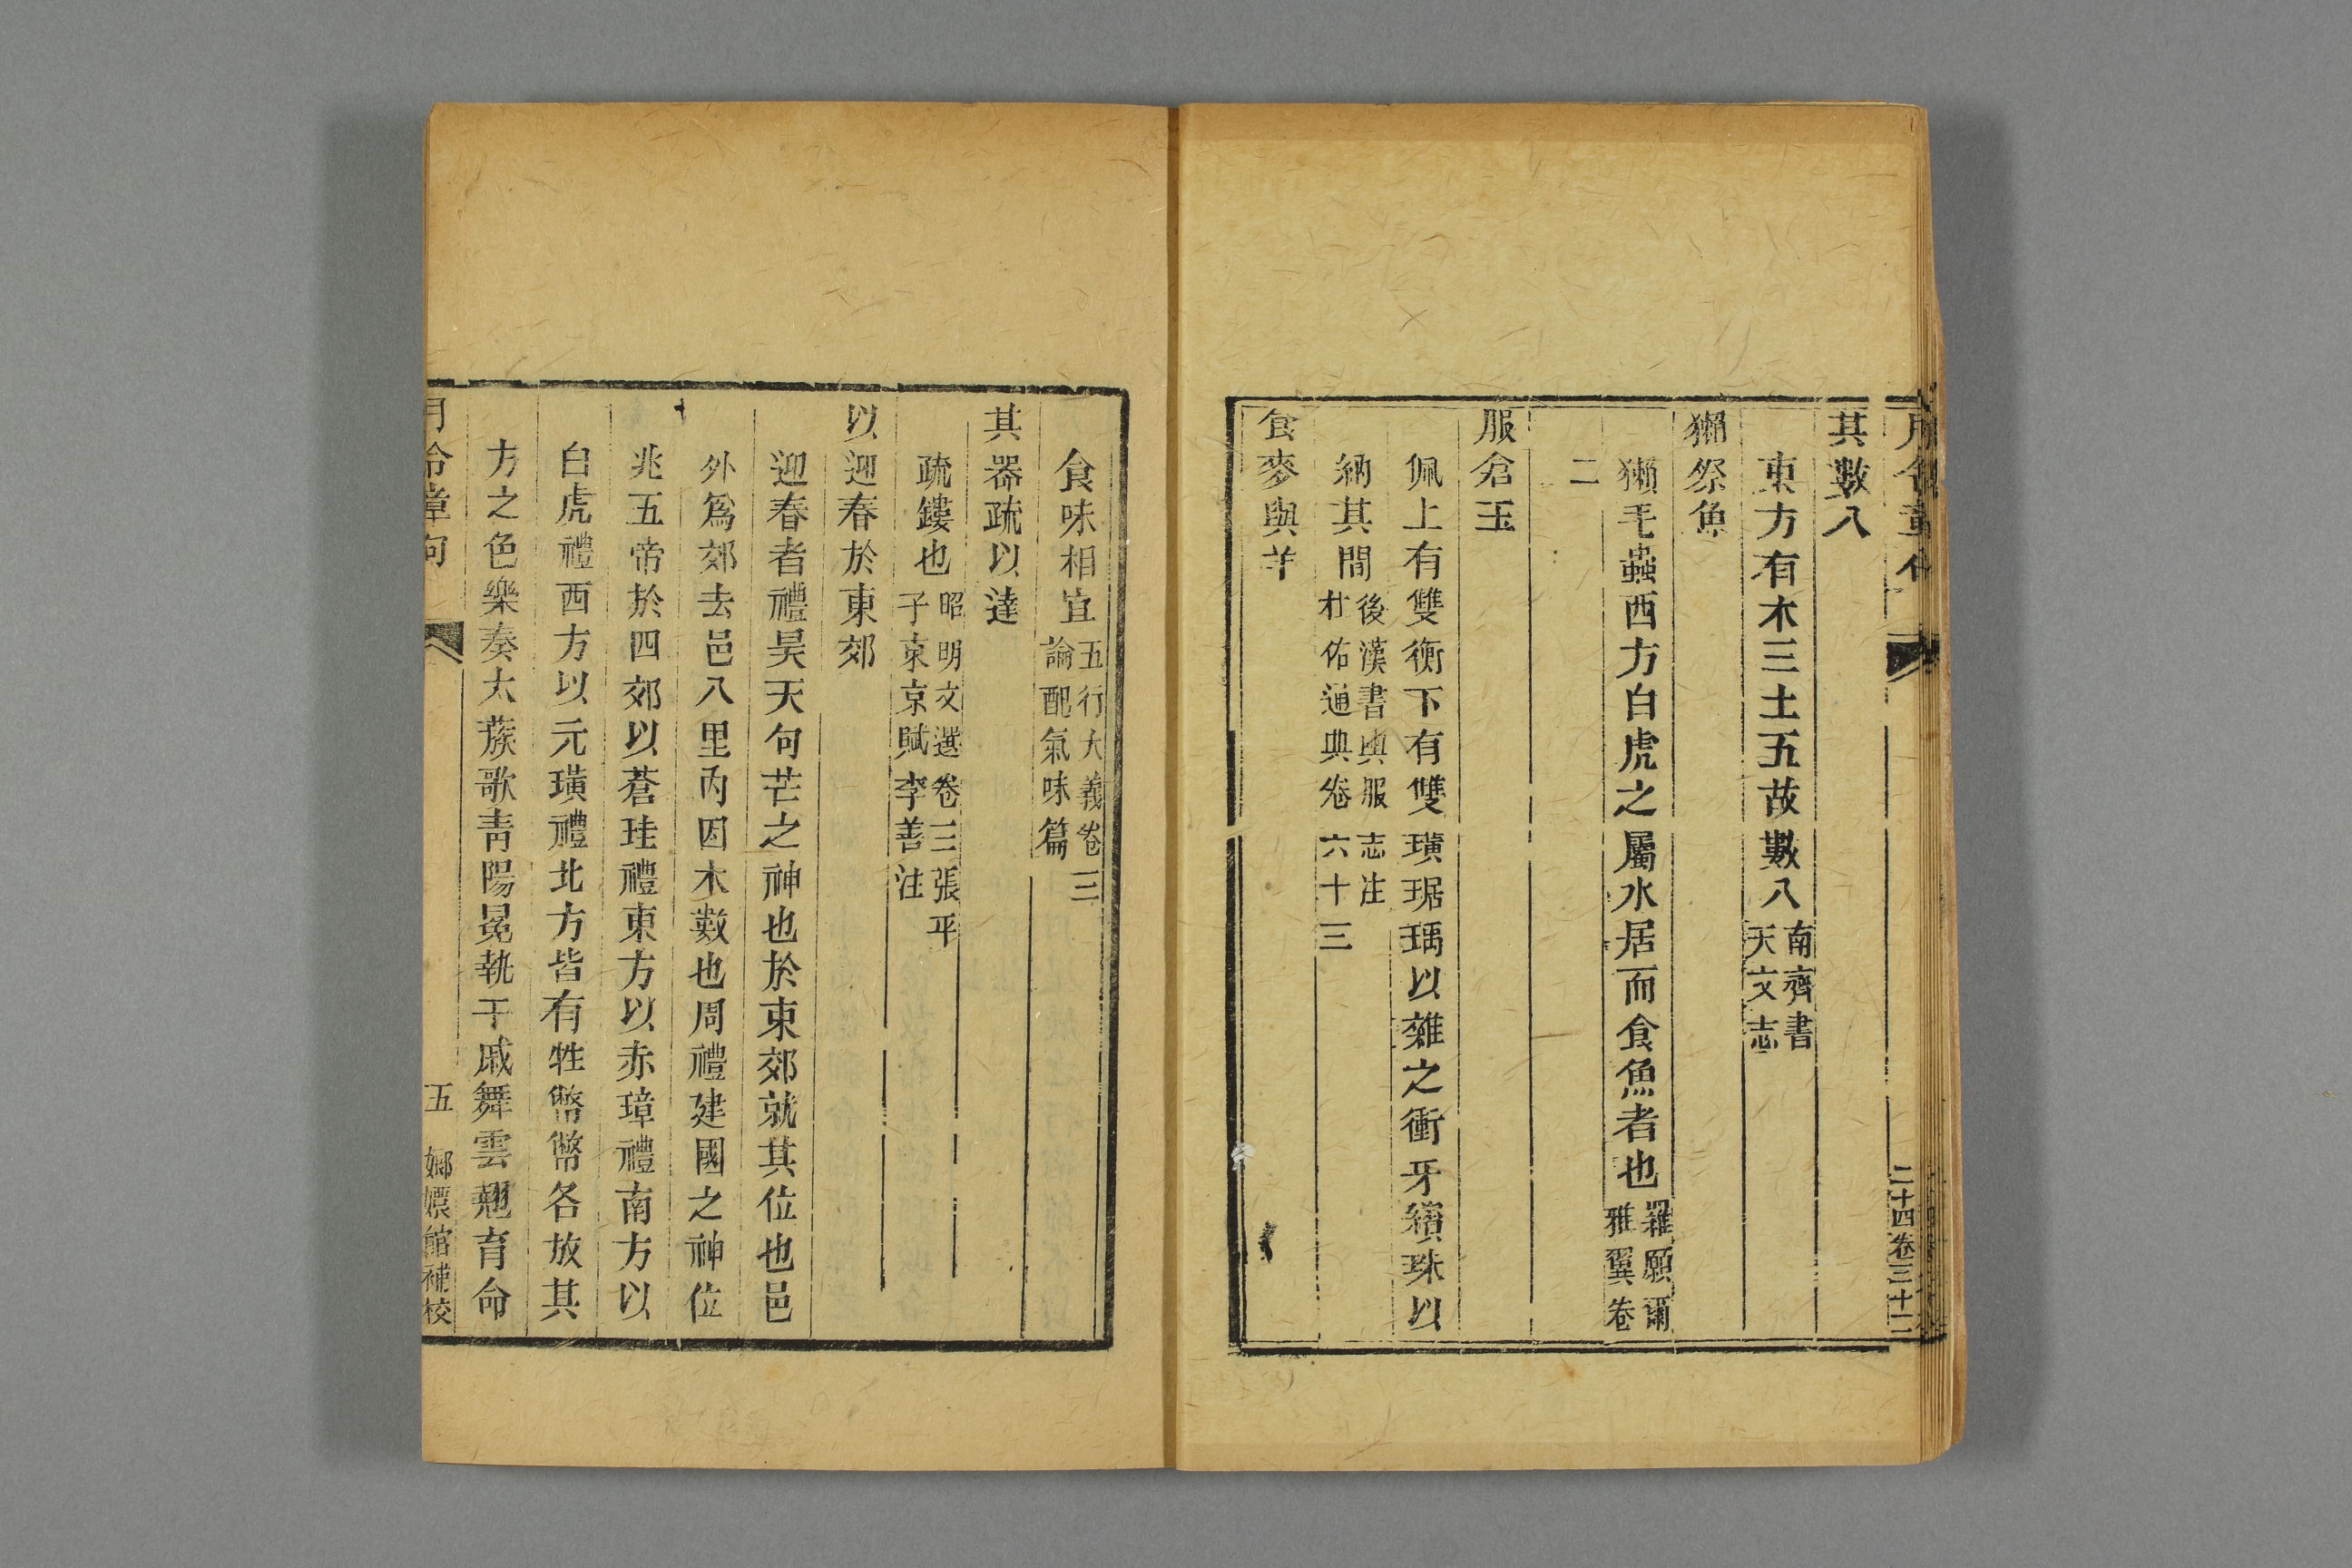 月令章句
二十四卷三十二
其數八
東方有木三土五故數八南齊書天文志
獺祭魚
獺毛蟲西方白虎之屬水居而食魚者也羅願爾雅翼卷
二
服倉玉
佩上有雙衡下有雙璜琚瑀以雜之衝牙蠙珠以
納其間後漢書輿服志注杜佑通典卷六十三
食麥與羊
食味相宜五行大義卷三論配氣味篇
其器疏以達
疏鏤也昭明文選卷三張平子東京賦李善注
以迎春於東郊
迎春者禮昊天句芒之神也於東郊就其位也邑
外爲郊去邑八里內因木數也周禮建國之神位
兆五帝於四郊以蒼珪禮東方以赤璋禮南方以
白虎禮西方以元璜禮北方皆有牲幣幣各放其
方之色樂奏太蔟歌青陽冕執干戚舞雲翹育命
月令章句
五
嫏嬛館補校